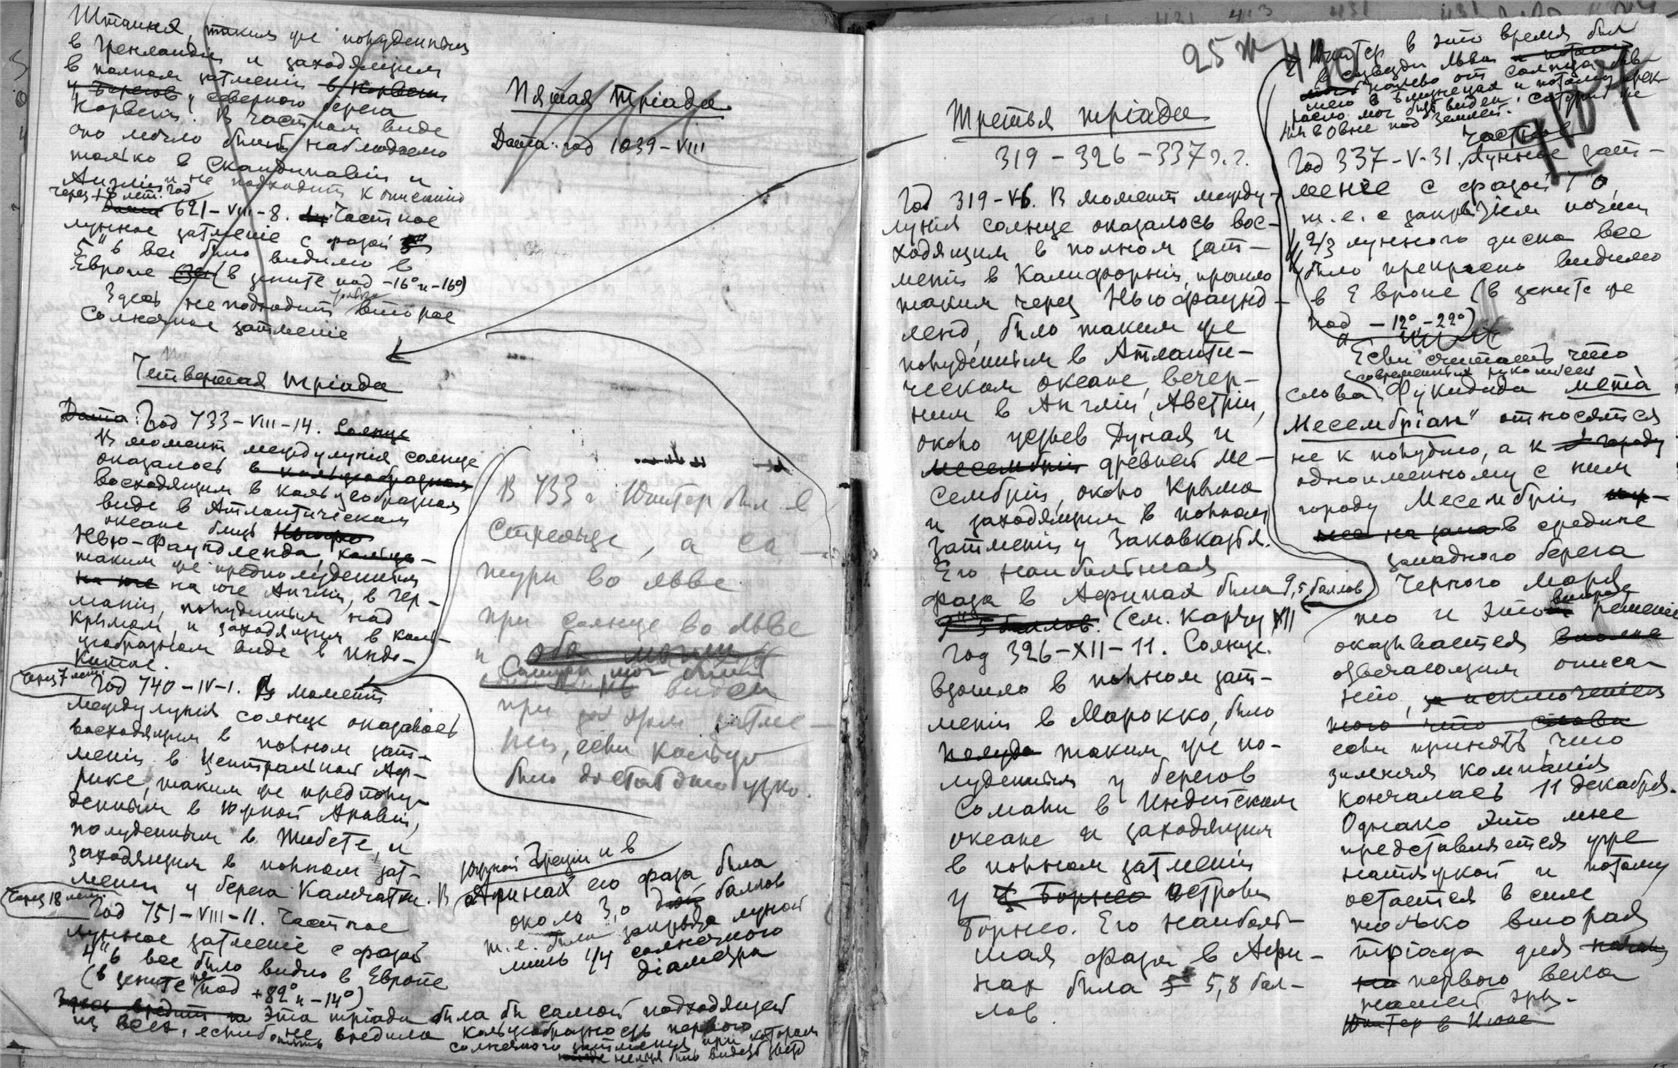 Штанiя, таким же полуденным
в Гренландiи и заходящим
в полном затменiи в Корвеги
у берегов северного берега
В частном виде
оно могло быть наблюдаемо
только в Скандинавiи и
Англiи и не подходит к описанию
Через +8 лет. Год
Дата 621-VIII-8. Частное
лунное затменiе с фазой
5"6 все было видимо в
Европе (в зените под -16° и -16°)
Здесь не подходит второе
солнечное затменiе
Четвертая трiада
Дата: Год 733-VIII-14. Солнце
В момент междулунiя солнце
оказалось в кольцеобразном
восходящим в кольцеобразном
виде в Атлантическом
океане близ
Нью-Фаундленда, кольце-
таким же предполуденным
на юге на юге Англiи, в Гер-
манiи, полуденным над
Крымом и заходящим в коль-
цеобразном виде в Индо-
Китае.
Через 7 лет
Год 740-IV-1. В момент
междулунiя солнце оказалось
восходящим в полном зат-
менiи в Центральной Аф-
рике, таким же предполу-
денным в Южной Аравiи,
полуденным в Тибете, и
заходящим в полном зат-
менiи у берега Камчатки. В
Через 18 лет
Год 751-VIII-11. Частное
лунное затменiе с фазой
4"6 все было видно в Европе
(в зените под +82° и -14°)
Эта трiада была бы самой подходящей
из всех, еслиб опять не вредила кольцеобразность первого
солнечного затменiя при котором
нельзя быть видеть звезд
Пятая трiада
Дата: год 1039-VIII
В 733 г Юпитер был в
Стрельце, а Са
турн во Льве
при солнце во Льве
и оба могли
Сатурн мог быть
виден
при затме-
нiи, если кольцо
было достаточно узко.
южной Грецiи и в
Афинах его фаза была
около 3,0 баллов
т.е. была закрыта луной
лишь 1/4 солнечного
дiаметра
25 ж
Третья трiада
319 - 326 - 337 г.г.
Год 319-VI-6. В момент между-
лунiя солнце оказалось вос-
ходящим в полном зат-
менiи в Калифорнiи, прошло
таким через Ньюфаунд-
ленд, было таким же
полуденным в Атланти-
ческом океане, вечер-
ним в Англiи, Австрiи,
около устьев Дуная и
месембрiи древней Ме-
сембрiи, около Крыма
и заходящим в полном
затменiи у Закавказья.
Его наибольшая
фаза в Афинах была 9,5 баллов
(см. Карту XII
Год 326-XII-11. Солнце
взошло в полном зат-
менiи в Марокко, было
полуде таким же по-
луденным у берегов
Сомали в Индийском
океане и заходящим
в полном затменiи
у Борнео острова
Борнео. Его наиболь-
шая фаза в Афи-
нах была 5,8 бал-
лов.
Юпитер в это время был
в созвездии Льва
налево от солнца
виден, Сатурн же
под землей.
Частное
Год 337-V-31, лунное зат-
менiе с фазой 7"0,
т.е. с закрытiем почти
2/3 лунного диска все
было прекрасно видимо
в Европе (в зените же
под -12°, -22°)
Если считать что
современных рукописей
слова Фукидида "мета
Месембрiан" относятся
не к полудню, а к городу
одноименному с ним
городу Месембрiи
на запа в средине
западного берега
Черного моря,
то и это второе решенiе
оказывается вполне
отвечающим описа-
нiю, за исключенiем
того что слова
если принять, что
зимняя компанiя
кончалась 11 декабря.
Однако это мне
представляется уже
натяжкой и потому
остается в силе
только вторая
трiада для начала
первого века
нашей эры.
Юпитер в Июне